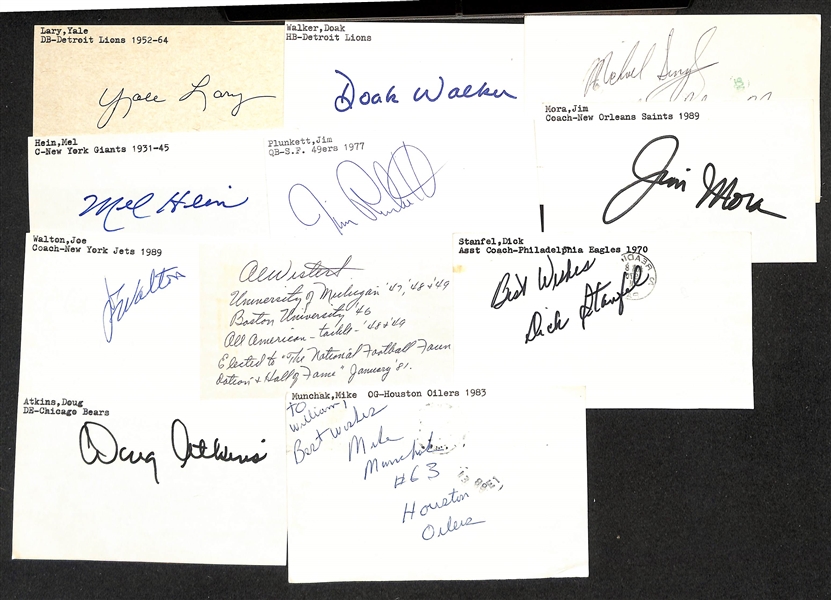 Lary, Yale
DB-Detroit Lions 1952-64
Yale Lary
Walker, Doak
HB-Detroit Lions
Doak Walker
Hein, Mel
C-New York Giants 1931-45
Mel Hein
Plunkett, Jim
QB-S.F. 49ers 1977
Jim Plunkett
Mora, Jim
Coach-New Orleans Saints 1989
Jim Mora
Walton, Joe
Coach-New York Jets 1989
J Walton
Al Wistert
University of Michigan '47, '48 & '49
Boston University '46
All American - tackle - '48 & '49
Elected to "The National Football Foun
dation & Hall of Fame" January '81.
Stanfel, Dick
Asst Coach-Philadelphia Eagles 1970
Best Wishes
Dick Stanfel
Atkins, Doug
DE-Chicago Bears
Doug Atkins
Munchak, Mike OG-Houston Oilers 1983
To
William,
Best Wishes
Mike
Munchak
#63
Houston
Oilers